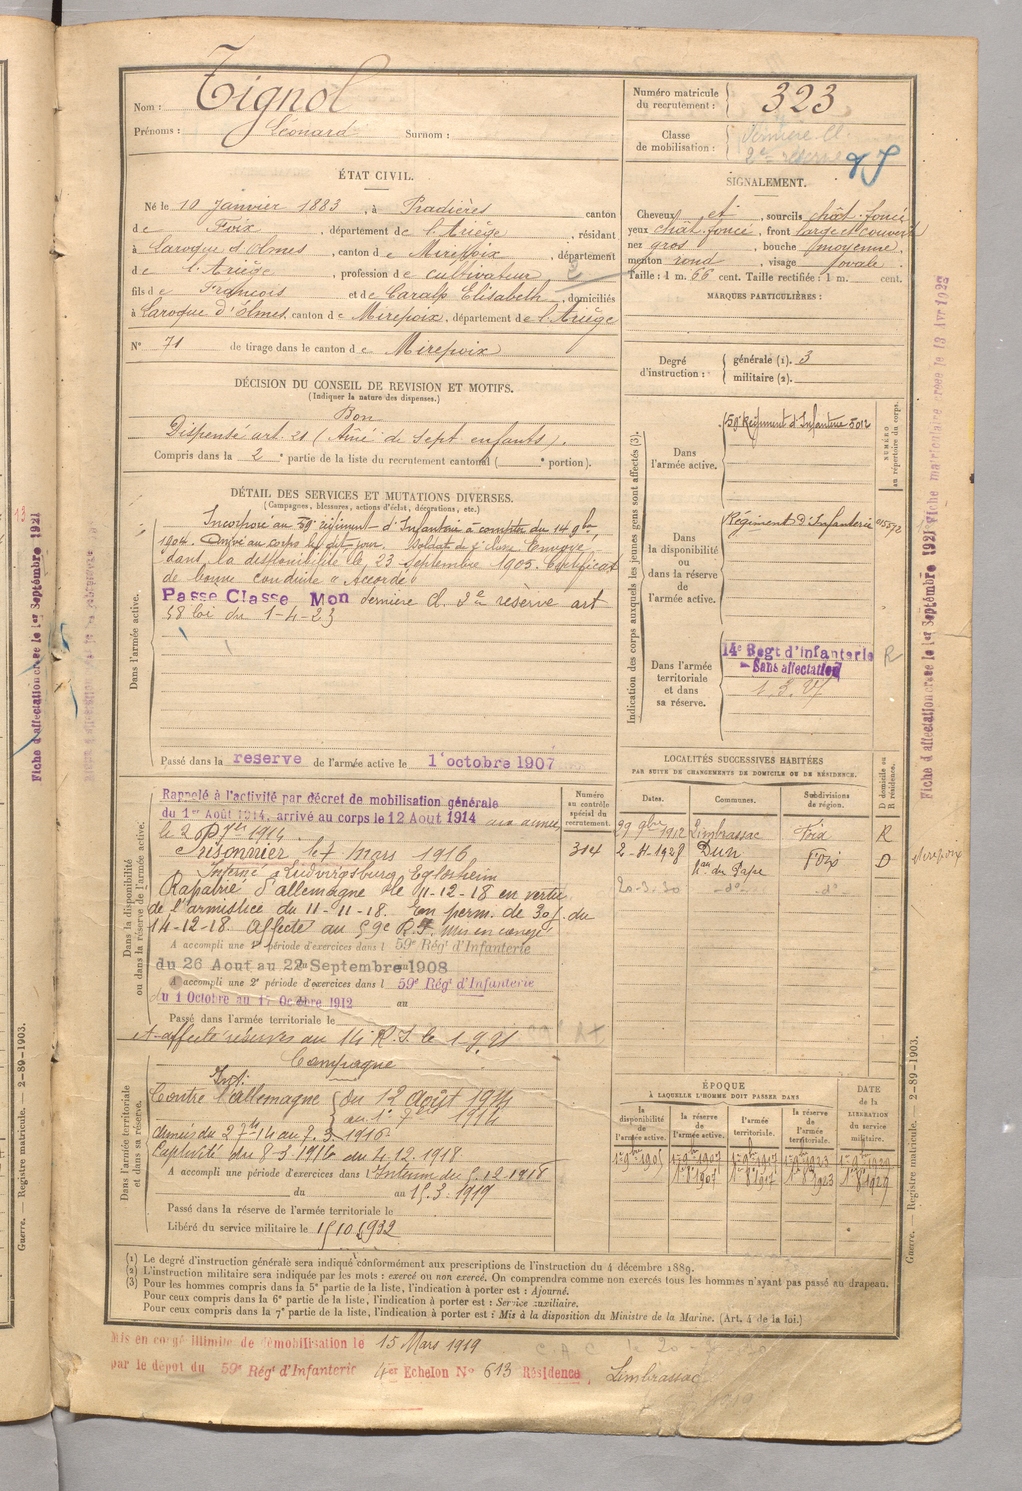 Nom : Tignol
Prénoms : Léonard Surnom :
Numéro matricule du recrutement : 323
Classe de mobilisation : dernière Cl. 2e réserve
ÉTAT CIVIL.
Né le 10 Janvier 1883, à Pradières canton
de Foix, département de l'Ariège, résidant
à Laroque d'Olmes, canton de Mirepoix, département
de l'Ariège, profession de cultivateur
fils de François et de Caralp Elisabeth, domiciliés
à Laroque d'Olmes, canton de Mirepoix, département de l'Ariège
N° 71 de tirage dans le canton de Mirepoix
SIGNALEMENT.
Cheveux et, sourcils chât. foncé
yeux chât. foncé, front large et couvert
nez gros, bouche moyenne
menton rond, visage ovale.
Taille : 1 m. 66 cent. Taille rectifiée : 1 m. cent.
MARQUES PARTICULIÈRES :
Degré d'instruction : générale (1). 3
militaire (2).
DÉCISION DU CONSEIL DE REVISION ET MOTIFS.
(Indiquer la nature des dispenses.)
Bon
Dispensé art. 21 (Aîné de sept enfants).
Compris dans la 2e partie de la liste du recrutement cantonal ( e portion).
DÉTAIL DES SERVICES ET MUTATIONS DIVERSES.
(Campagnes, blessures, actions d'éclat, décorations, etc.)
Dans l'armée active.
Incorporé au 59e régiment d'Infanterie à compter du 14 9bre
1904. Arrivé au corps le dit jour. Soldat de 2e classe. Envoyé
dans la disponibilité le 23 septembre 1905. Certificat
de bonne conduite « Accordé »
Passe Classe Mon dernière cl. 2e réserve art
58 loi du 1-4-23
Passé dans la reserve de l'armée active le 1er octobre 1907
Indication des corps auxquels les jeunes gens sont affectés (3).
NUMÉRO au répertoire du corps.
Dans l'armée active.
59e Régiment d'Infanterie 5012
Dans la disponibilité ou dans la réserve de l'armée active.
Régiment d'Infanterie 015572
Dans l'armée territoriale et dans sa réserve.
14e Regt d'infanterie R
Sans affectation
LOCALITÉS SUCCESSIVES HABITÉES
PAR SUITE DE CHANGEMENTS DE DOMICILE OU DE RÉSIDENCE.
Dates. Communes. Subdivisions de région. D domicile ou R résidence.
29 9bre 1912 Limbrassac Foix R
2-4-1928 Dun Foix D Mirepoix
du Pape
20-3-30 -do- -do-
Dans la disponibilité ou dans la réserve de l'armée active.
Numéro au contrôle spécial du recrutement.
314
Rappelé à l'activité par décret de mobilisation générale
du 1er Août 1914, arrivé au corps le 12 Aout 1914 aux armées
le 2 7bre 1914.
Prisonnier le 7 mars 1916
Interné à Ludwigsburg Eglosheim
Rapatrié d'allemagne le 11-12-18 en vertu
de l'armistice du 11-11-18. En perm. de 30 j. du
14-12-18. Affecté au 59e R.I. mis en congé
A accompli une 1re période d'exercices dans l 59e Rég' d'Infanterie
du 26 Aout au 22 Septembre 1908
A accompli une 2e période d'exercices dans l 59e Rég' d'Infanterie
du 1 Octobre au 17 Octobre 1912 au
Passé dans l'armée territoriale le
affecté réserves au 14 R.I. le 1.9.21
Dans l'armée territoriale et dans sa réserve.
Campagne
Int.
Contre l'allemagne du 12 août 1914
au 1er 7bre 1914
Armées du 2 7bre 14 au 7.3.1916
Captivité du 8-3-1916 au 4.12.1918
A accompli une période d'exercices dans l Intérieur du 5.12.1918
du au 15.3.1919
Passé dans la réserve de l'armée territoriale le
Libéré du service militaire le 15 10 1932
ÉPOQUE
À LAQUELLE L'HOMME DOIT PASSER DANS
la disponibilité de l'armée active. la réserve de l'armée active. l'armée territoriale. la réserve de l'armée territoriale. DATE de la LIBÉRATION du service militaire.
1er 9bre 1905 1er 9bre 1907 1er 9bre 1917 1er 9bre 1923 1er 9bre 1929
1er 8bre 1907 1er 8bre 1917 1er 8bre 1923 1er 8bre 1929
(1) Le degré d'instruction générale sera indiqué conformément aux prescriptions de l'instruction du 4 décembre 1889.
(2) L'instruction militaire sera indiquée par les mots : exercé ou non exercé. On comprendra comme non exercés tous les hommes n'ayant pas passé au drapeau.
(3) Pour les hommes compris dans la 5e partie de la liste, l'indication à porter est : Ajourné.
Pour ceux compris dans la 6e partie de la liste, l'indication à porter est : Service auxiliaire.
Pour ceux compris dans la 7e partie de la liste, l'indication à porter est : Mis à la disposition du Ministre de la Marine. (Art. 4 de la loi.)
Mis en congé illimité de démobilisation le 15 Mars 1919
par le dépot du 59e Rég' d'Infanterie 4er Echelon N° 613 Résidence, Limbrassac
Fiche d'affectation créée le 1er Septembre 1921
Fiche matriculaire créée le 13 Avr 1923
Guerre. — Registre matricule. — 2-89-1903.
Fiche d'affectation créée le 1er Septembre 1921
Guerre. — Registre matricule. — 2-89-1903.